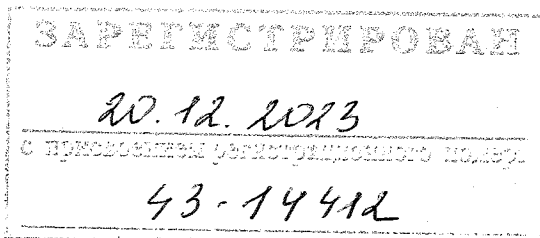 ЗАРЕГИСТРИРОВАН
20.12.2023
с присвоением регистрационного номера
43-14412